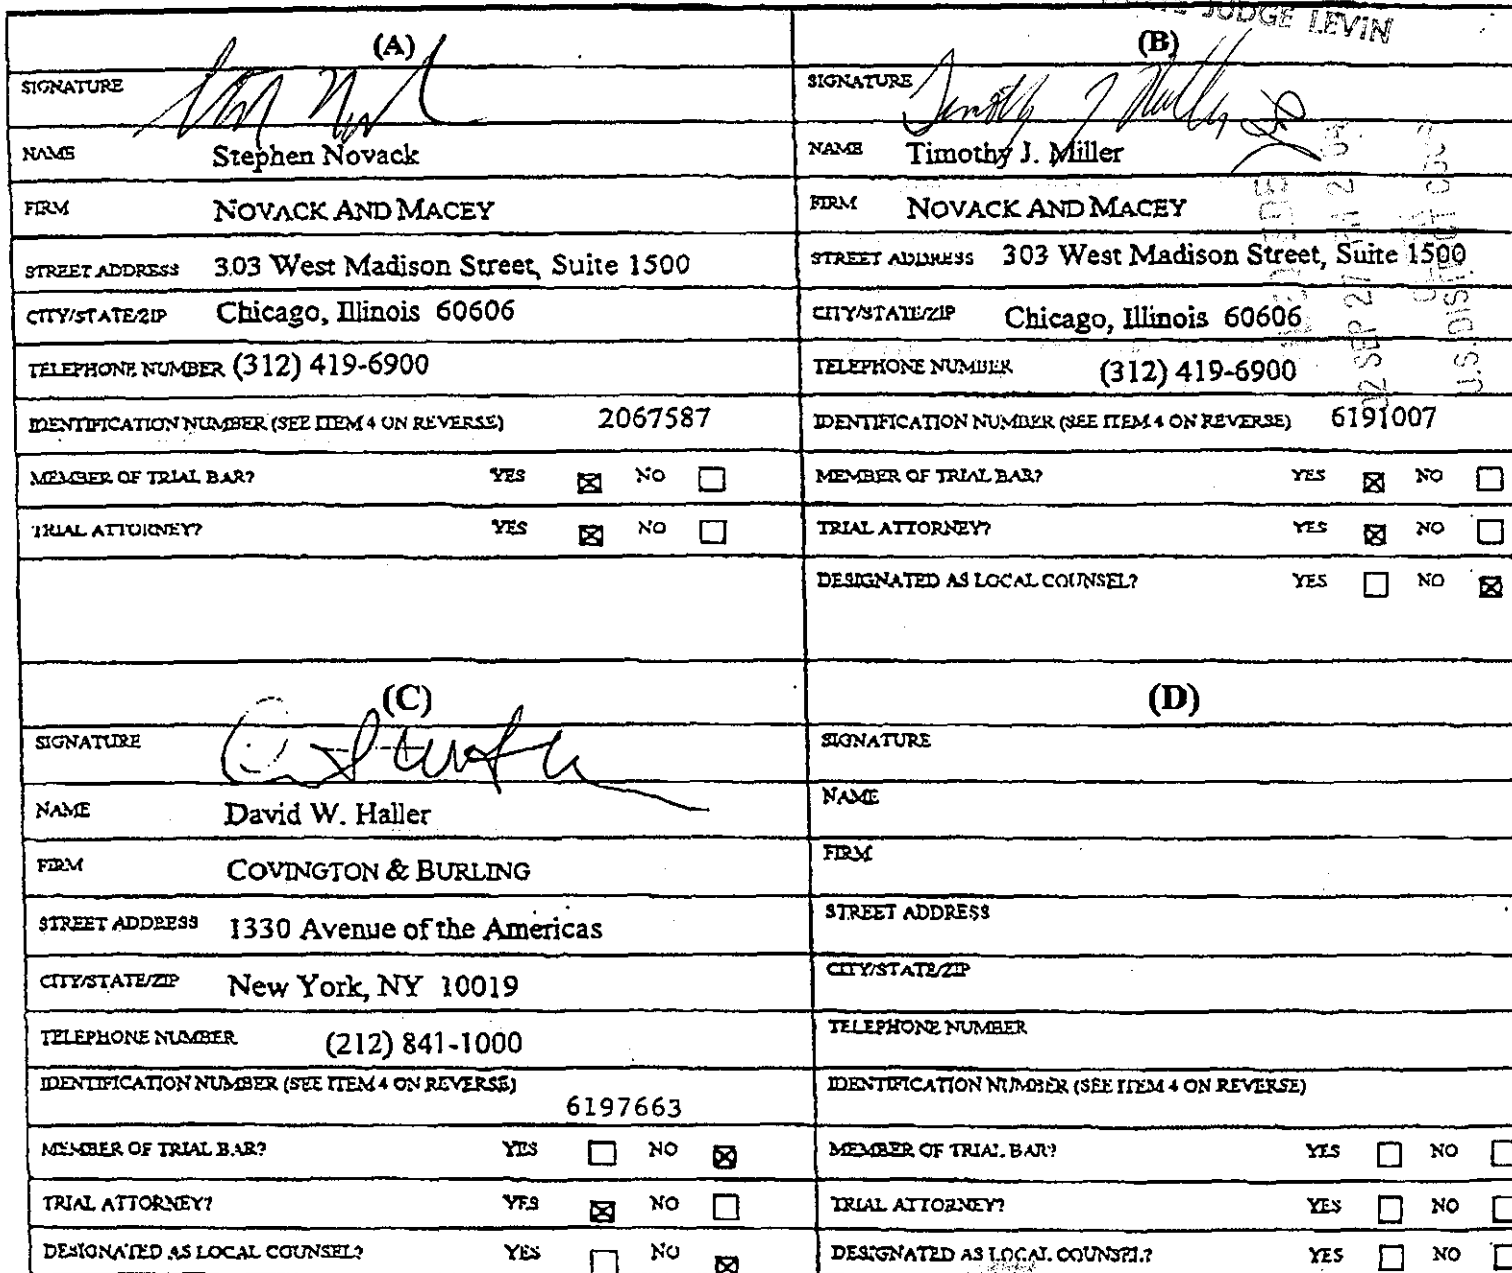 JUDGE LEVIN
(A)
SIGNATURE
NAME Stephen Novack
FIRM NOVACK AND MACEY
STREET ADDRESS 303 West Madison Street, Suite 1500
CITY/STATE/ZIP Chicago, Illinois 60606
TELEPHONE NUMBER (312) 419-6900
IDENTIFICATION NUMBER (SEE ITEM 4 ON REVERSE) 2067587
MEMBER OF TRIAL BAR? YES ☒ NO ☐
TRIAL ATTORNEY? YES ☒ NO ☐
(B)
SIGNATURE Timothy J Miller
NAME Timothy J. Miller
FIRM NOVACK AND MACEY
STREET ADDRESS 303 West Madison Street, Suite 1500
CITY/STATE/ZIP Chicago, Illinois 60606
TELEPHONE NUMBER (312) 419-6900
IDENTIFICATION NUMBER (SEE ITEM 4 ON REVERSE) 6191007
MEMBER OF TRIAL BAR? YES ☒ NO ☐
TRIAL ATTORNEY? YES ☒ NO ☐
DESIGNATED AS LOCAL COUNSEL? YES ☐ NO ☒
SEP 27
U.S. DISTRICT
(C)
SIGNATURE
NAME David W. Haller
FIRM COVINGTON & BURLING
STREET ADDRESS 1330 Avenue of the Americas
CITY/STATE/ZIP New York, NY 10019
TELEPHONE NUMBER (212) 841-1000
IDENTIFICATION NUMBER (SEE ITEM 4 ON REVERSE)
6197663
MEMBER OF TRIAL BAR? YES ☐ NO ☒
TRIAL ATTORNEY? YES ☒ NO ☐
DESIGNATED AS LOCAL COUNSEL? YES ☐ NO ☒
(D)
SIGNATURE
NAME
FIRM
STREET ADDRESS
CITY/STATE/ZIP
TELEPHONE NUMBER
IDENTIFICATION NUMBER (SEE ITEM 4 ON REVERSE)
MEMBER OF TRIAL BAR? YES ☐ NO ☐
TRIAL ATTORNEY? YES ☐ NO ☐
DESIGNATED AS LOCAL COUNSEL? YES ☐ NO ☐